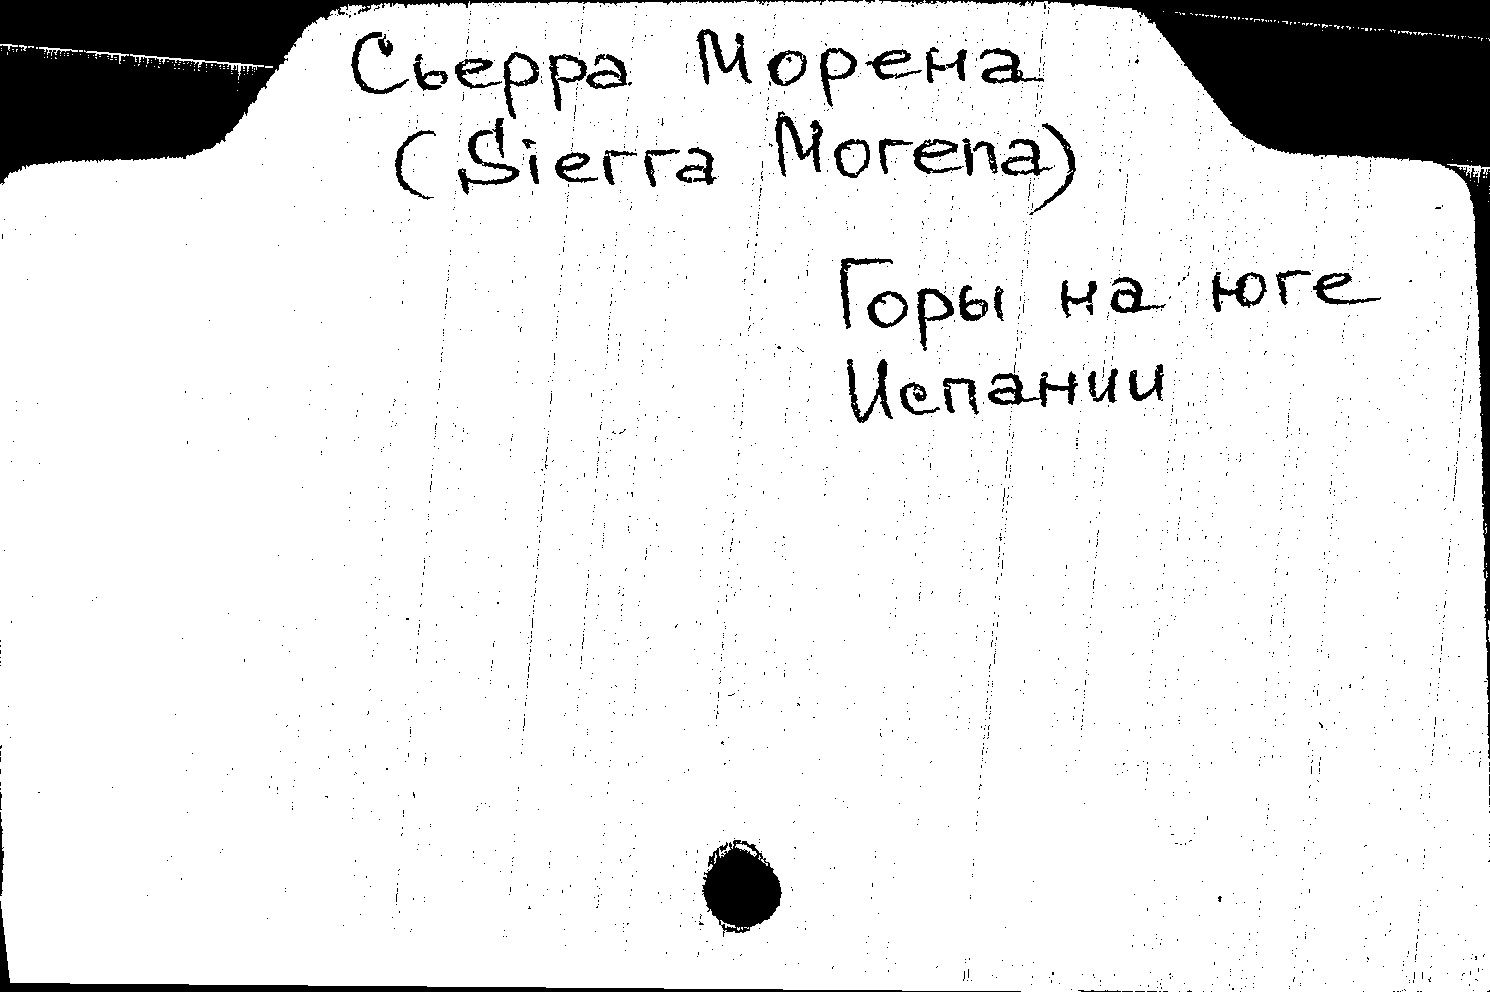 Сьерра Морена
(Sierra Morena)
Горы на юге
Испании